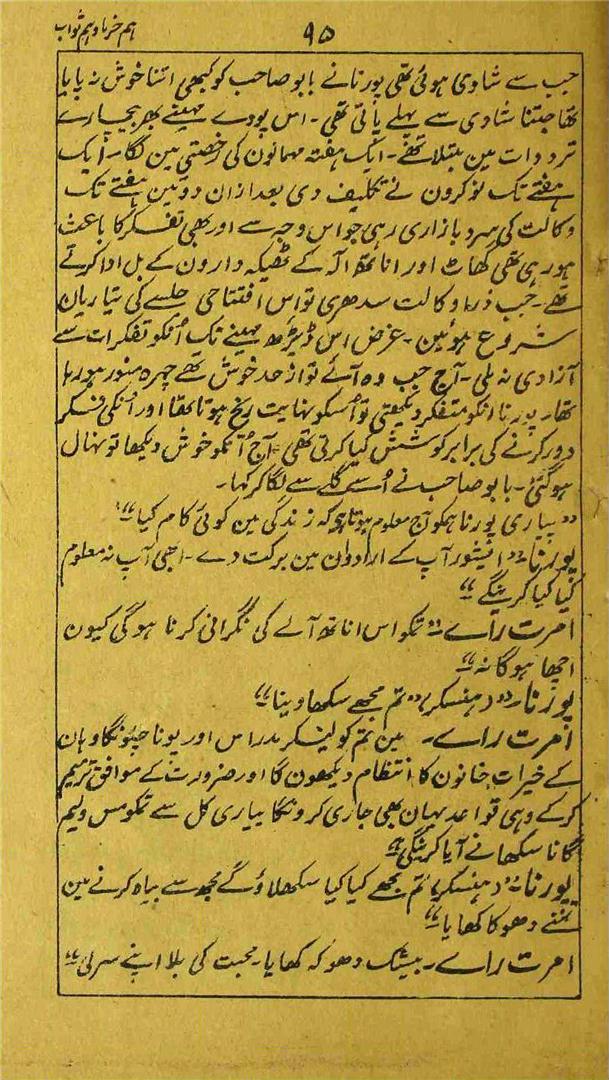 ہم خرما و ہم ثواب
۹۵
جب سے شادی ہوئی تھی پورنا نے بابو صاحب کو کبھی اتنا خوش نہ پایا
تھا جتنا شادی سے پہلے پاتی تھی۔ اس پورے مہینے بھر بیچارے
ترددات مین مبتلا تھے۔ ایک ہفتہ مہمانون کی رخصتی مین لگا۔ ایک
ہفتے تک نوکرون نے تکلیف دی بعد ازان دو تین ہفتے تک
وکالت کی سرد بازاری رہی جو اس وجہ سے اور بھی تفکر کا باعث
ہو رہی تھی گھاٹ اور اناتھ آلہ کے ٹھیکہ دارون کے بل ادا کرتے
تھے۔ جب ذرا وکالت سدھری تو اس افتتاحی جلسے کی تیاریان
شروع ہوئین۔ غرض اس ڈیڑھ مہینے تک اُنکو تفکرات سے
آزادی نہ ملی۔ آج جب وہ آئے تو از حد خوش تھے چہرہ منور ہو رہا
تھا۔ پورنا انکو متفکر دیکھتی تو اُسکو نہایت رنج ہوتا تھا اور اُنکی فکر
دور کرنے کی برابر کوشش کیا کرتی تھی۔ آج اُنکو خوش دیکھا تو نہال
ہو گئی۔ بابو صاحب نے اُسے گلے سے لگا کر کہا۔
”پیاری پورنا ہمکو آج معلوم ہوتا ہے کہ زندگی مین کوئی کام کیا“
پورنا۔ ”ایشور آپ کے ارادون مین برکت دے۔ ابھی آپ نہ معلوم
کیا کیا کرینگے“
امرت رائے۔ ”تمکو اس اناتھ آلے کی نگرانی کرنا ہو گی کیون
اچھا ہو گا نہ“
پورنا۔ ”(ہنسکر)، ”تم مجھے سکھا دینا“
امرت رائے۔ مین تم کو لیکر مدراس اور پونا چلونگا وہان
کے خیرات خانون کا انتظام دیکھون گا اور ضرورت کے موافق ترمیم
کر کے وہی قواعد یہان بھی جاری کرونگا پیاری کل سے تمکو مس ولیم
گانا سکھانے آیا کرینگی“
پورنا۔ ”(ہنسکر)، تم مجھے کیا کیا سکھلاؤگے مجھ سے بیاہ کرنے مین
تمنے دھوکا کھایا“
امرت رائے۔ بیشک دھوکہ کھایا۔ محبت کی بلا اپنے سر لی“